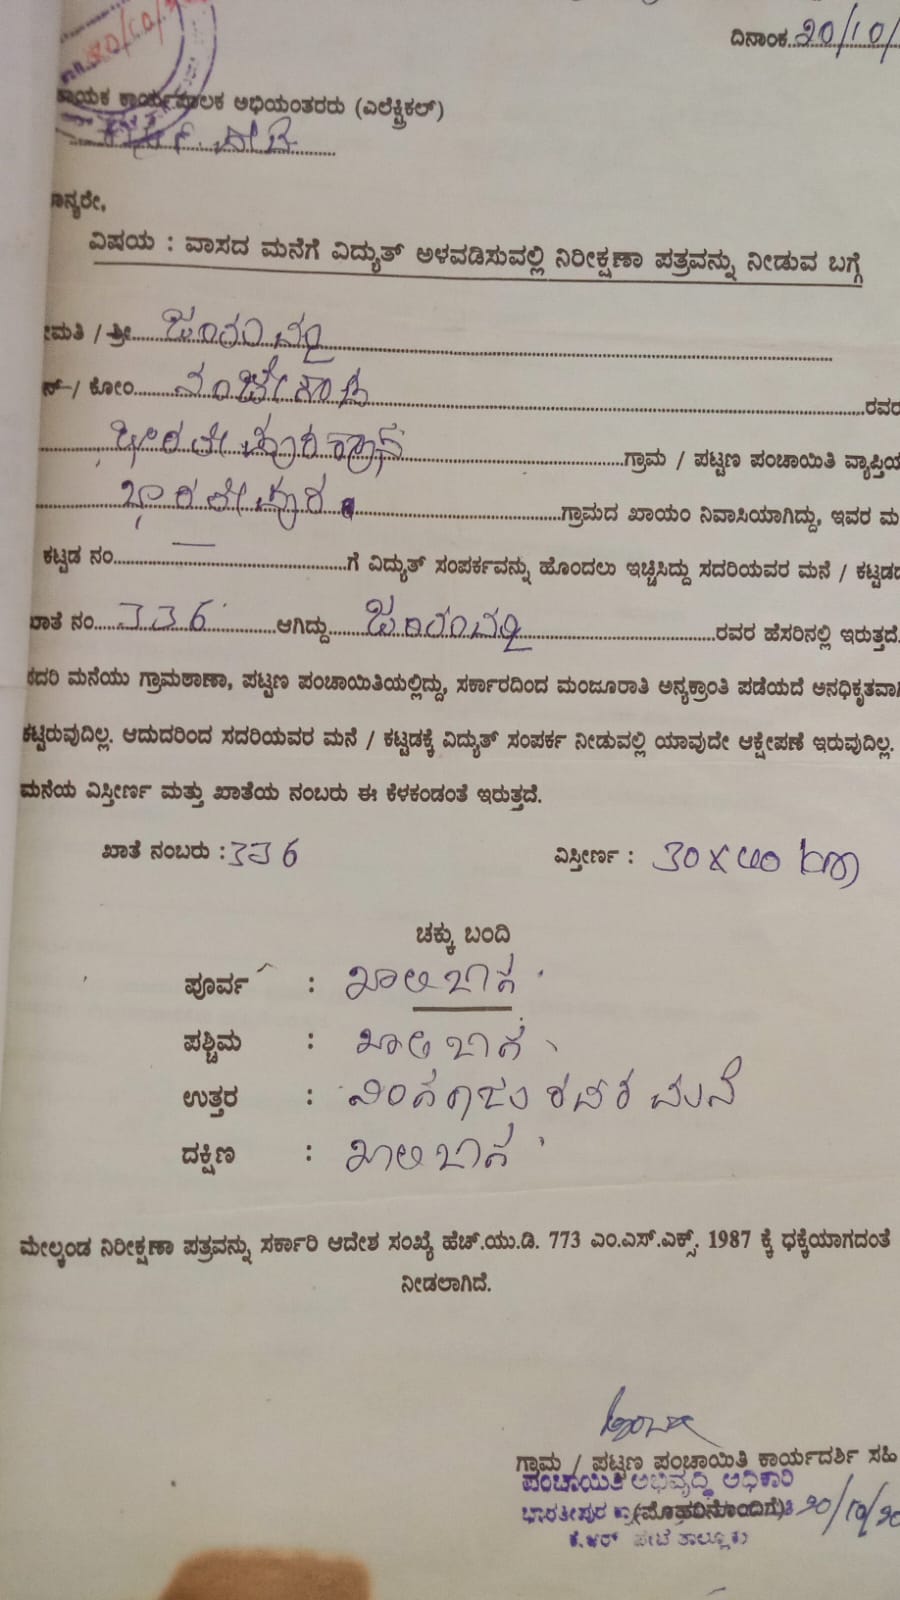 ದಿನಾಂಕ 20/10/
ಾಯಕ ಕಾರ್ಯಪಾಲಕ ಅಭಿಯಂತರರು (ಎಲೆಕ್ಟ್ರಿಕಲ್)
ಾನ್ಯರೇ,
ವಿಷಯ : ವಾಸದ ಮನೆಗೆ ವಿದ್ಯುತ್ ಅಳವಡಿಸುವಲ್ಲಿ ನಿರೀಕ್ಷಣಾ ಪತ್ರವನ್ನು ನೀಡುವ ಬಗ್ಗೆ
ೀಮತಿ / ಶ್ರೀ ಜಯಮ್ಮ
ನ್ / ಕೋಂ ನಂಜೇಗೌಡ ರವರ
ಭಾರತೀಪುರ ಗ್ರಾಮ / ಪಟ್ಟಣ ಪಂಚಾಯಿತಿ ವ್ಯಾಪ್ತಿಯ
ಭಾರತೀಪುರ ಗ್ರಾಮದ ಖಾಯಂ ನಿವಾಸಿಯಾಗಿದ್ದು, ಇವರ ಮ
ಕಟ್ಟಡ ನಂ. — ಗೆ ವಿದ್ಯುತ್ ಸಂಪರ್ಕವನ್ನು ಹೊಂದಲು ಇಚ್ಛಿಸಿದ್ದು ಸದರಿಯವರ ಮನೆ / ಕಟ್ಟಡದ
ಖಾತೆ ನಂ. 336 ಆಗಿದ್ದು ಜಯಮ್ಮ ರವರ ಹೆಸರಿನಲ್ಲಿ ಇರುತ್ತದೆ.
ಸದರಿ ಮನೆಯು ಗ್ರಾಮಠಾಣಾ, ಪಟ್ಟಣ ಪಂಚಾಯಿತಿಯಲ್ಲಿದ್ದು, ಸರ್ಕಾರದಿಂದ ಮಂಜೂರಾತಿ ಅನ್ಯಕ್ರಾಂತಿ ಪಡೆಯದೆ ಅನಧಿಕೃತವಾಗಿ
ಕಟ್ಟಿರುವುದಿಲ್ಲ. ಆದುದರಿಂದ ಸದರಿಯವರ ಮನೆ / ಕಟ್ಟಡಕ್ಕೆ ವಿದ್ಯುತ್ ಸಂಪರ್ಕ ನೀಡುವಲ್ಲಿ ಯಾವುದೇ ಆಕ್ಷೇಪಣೆ ಇರುವುದಿಲ್ಲ.
ಮನೆಯ ವಿಸ್ತೀರ್ಣ ಮತ್ತು ಖಾತೆಯ ನಂಬರು ಈ ಕೆಳಕಂಡಂತೆ ಇರುತ್ತದೆ.
ಖಾತೆ ನಂಬರು : 336 ವಿಸ್ತೀರ್ಣ : 30x40
ಚಕ್ಕು ಬಂದಿ
ಪೂರ್ವ : ಖಾಲಿ ಜಾಗ
ಪಶ್ಚಿಮ : ಖಾಲಿ ಜಾಗ
ಉತ್ತರ : ರವರ ಮನೆ
ದಕ್ಷಿಣ : ಖಾಲಿ ಜಾಗ
ಮೇಲ್ಕಂಡ ನಿರೀಕ್ಷಣಾ ಪತ್ರವನ್ನು ಸರ್ಕಾರಿ ಆದೇಶ ಸಂಖ್ಯೆ ಹೆಚ್.ಯು.ಡಿ. 773 ಎಂ.ಎಸ್.ಎಕ್ಸ್. 1987 ಕ್ಕೆ ಧಕ್ಕೆಯಾಗದಂತೆ
ನೀಡಲಾಗಿದೆ.
ಗ್ರಾಮ / ಪಟ್ಟಣ ಪಂಚಾಯಿತಿ ಕಾರ್ಯದರ್ಶಿ ಸಹಿ
ಪಂಚಾಯಿತಿ ಅಭಿವೃದ್ಧಿ ಅಧಿಕಾರಿ
ಭಾರತೀಪುರ (ಮೊಹರಿನೊಂದಿಗೆ) 20/10/20
ಕೆ.ಆರ್ ಪೇಟೆ ತಾಲ್ಲೂಕು